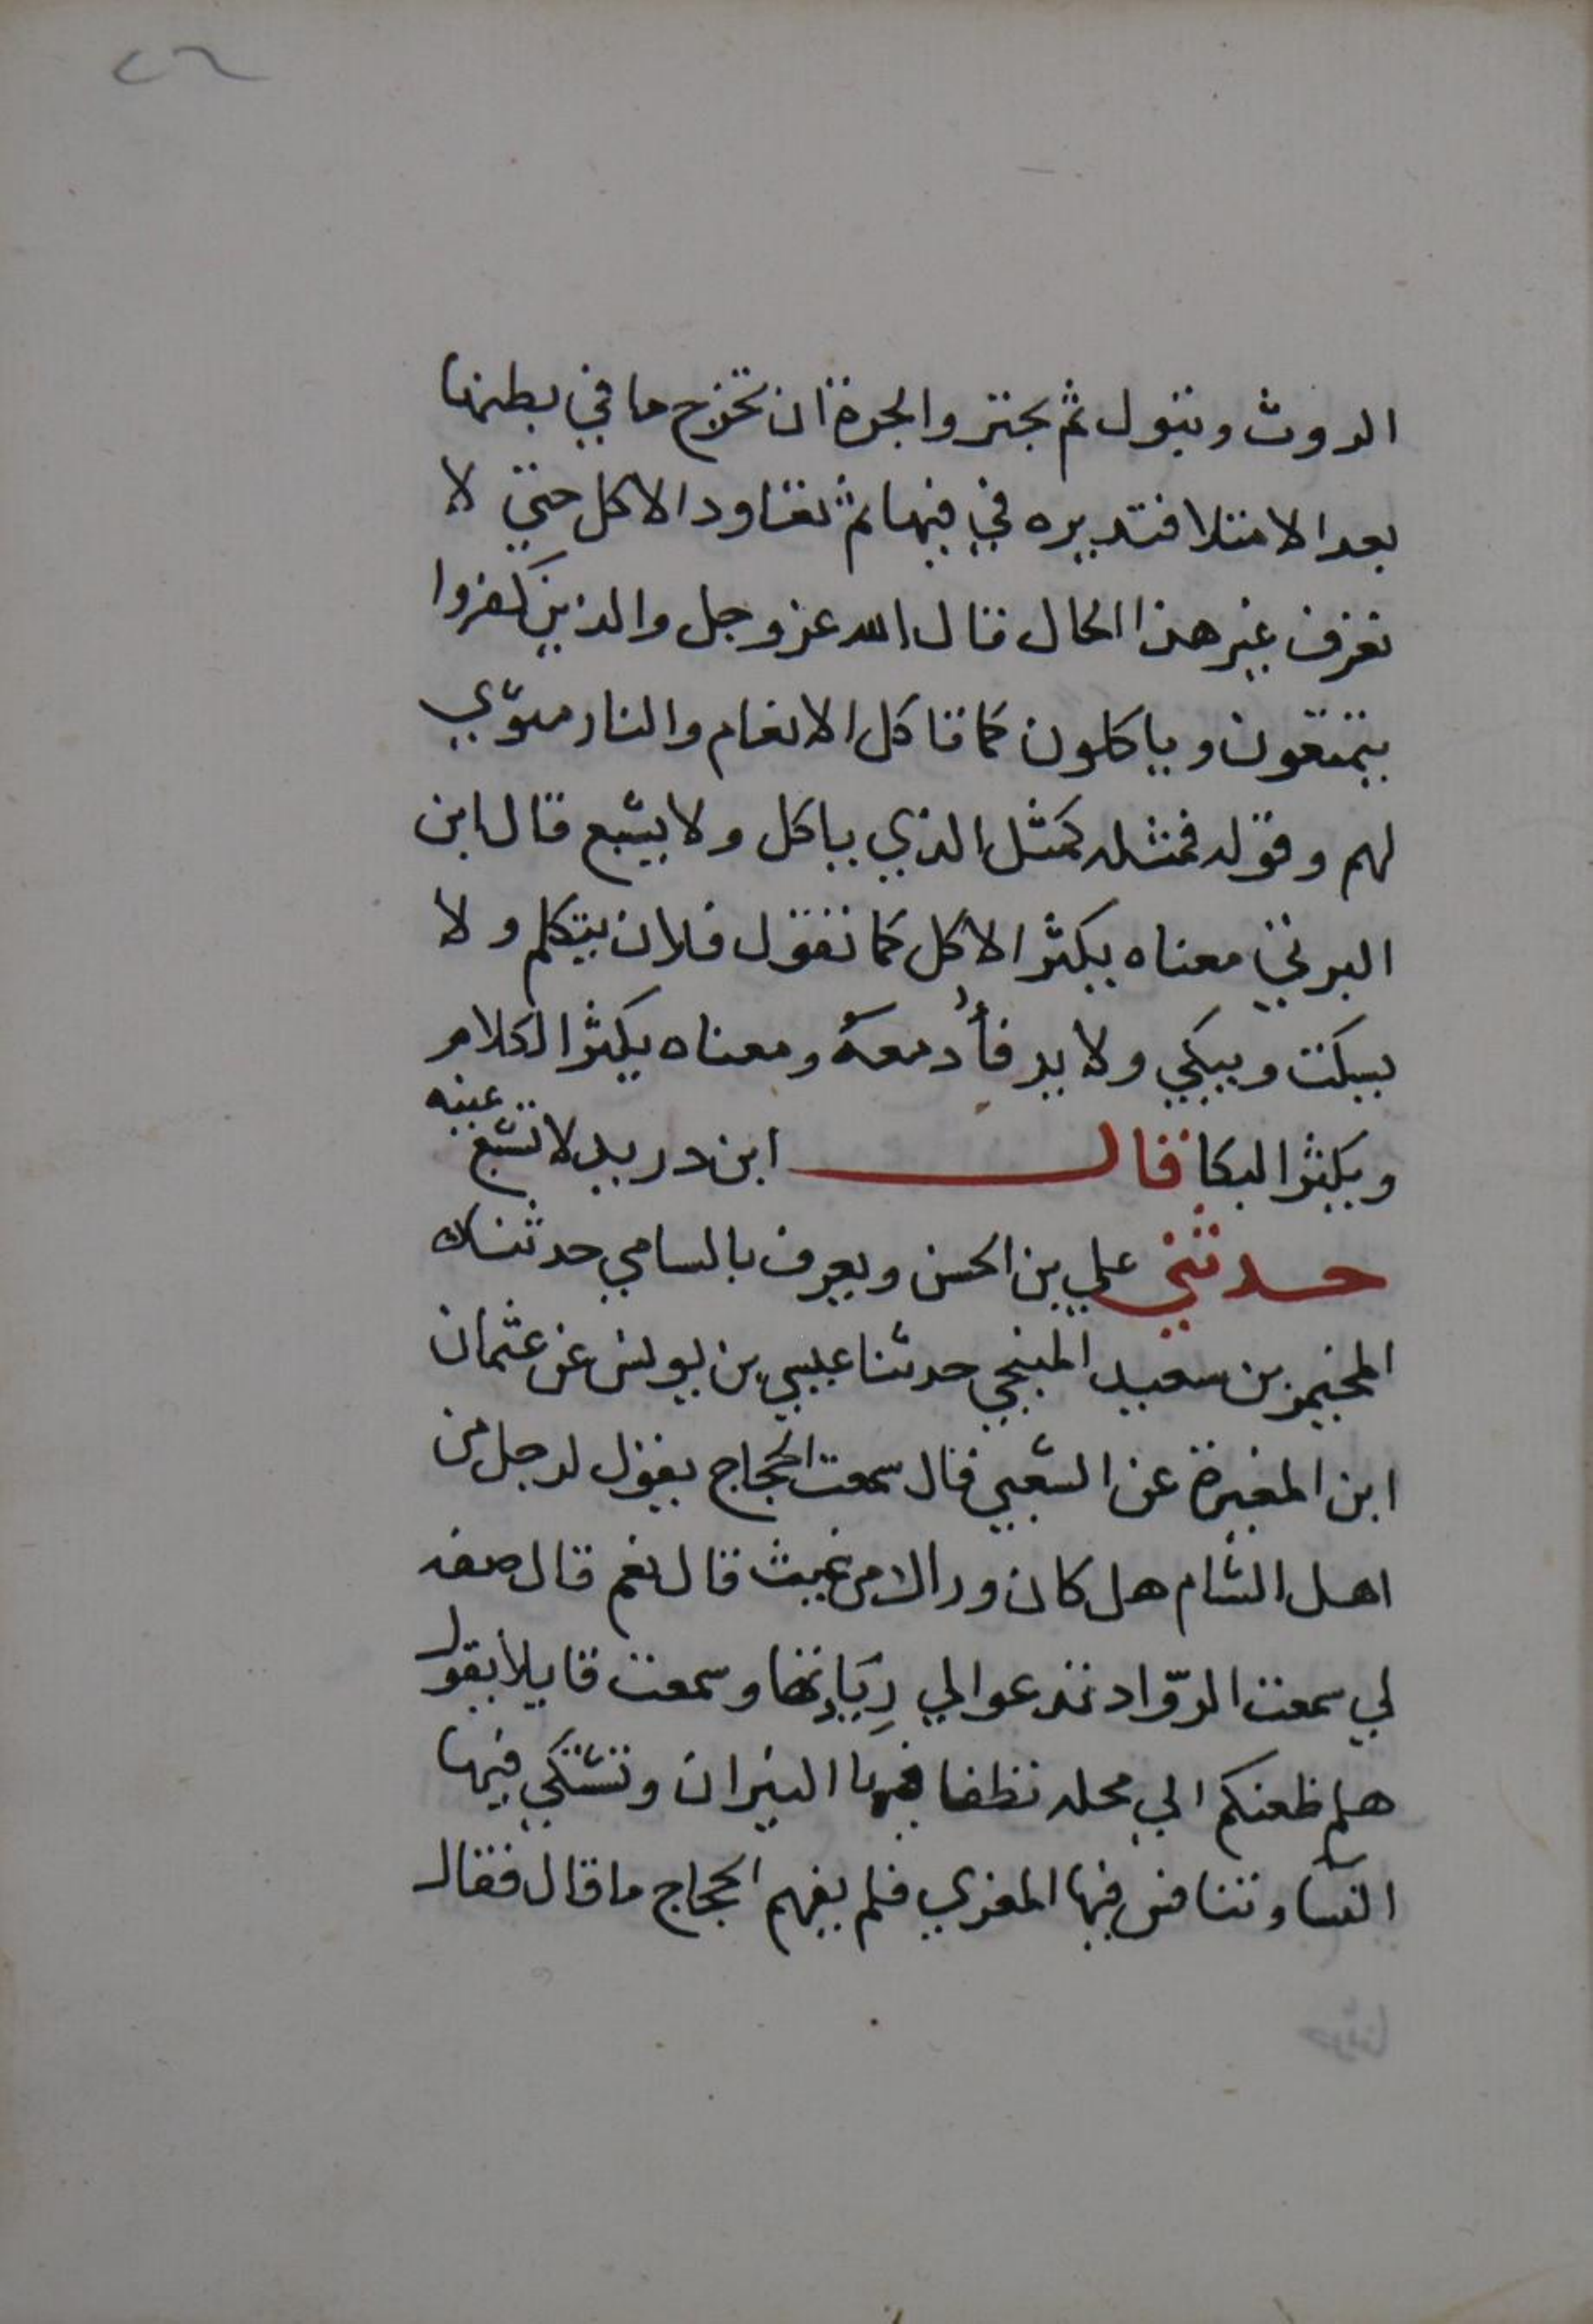 ٢٦
الروث وتبول ثم يجتر والجرة ان تخرج ما في بطنها
بعد الامتلا فتديره في فيها ثم تعاود الاكل حتي لا
تعرف غير هذا الحال قال الله عز وجل والذين كفروا
يتمتعون وياكلون كما تاكل الانعام والنار مثوّي
لهم وقوله فمثله كمثل الذي ياكل ولا يشبع قال ابن
البرتي معناه يكثر الاكل كما تقول فلان يتكلم ولا
يسكت ويبكي ولا يرقأُ دمعهُ ومعناه يكثر الكلام
ويكثر البكا فقال ابن دريد لا تشبع عينه
حدثني علي بن الحسن ويعرف بالسامي حدثنا
بن سعيد المنبجي حدثنا عيسي بن يونس عن عثمان
ابن المغيرة عن الشعبي قال سمعت الحجاج يقول لرجل من
اهل الشام هل كان وراك من غيث قال نعم قال صفه
لي سمعت الروّاد تدعوا الي رِيَادِتها وسمعت قايلا يقول
هلم ظعنكم الي محله تطفا فيها النيران وتشتكي فيها
النسا وتنافس فيها المعزي فلم يفهم الحجاج ما قال فقال